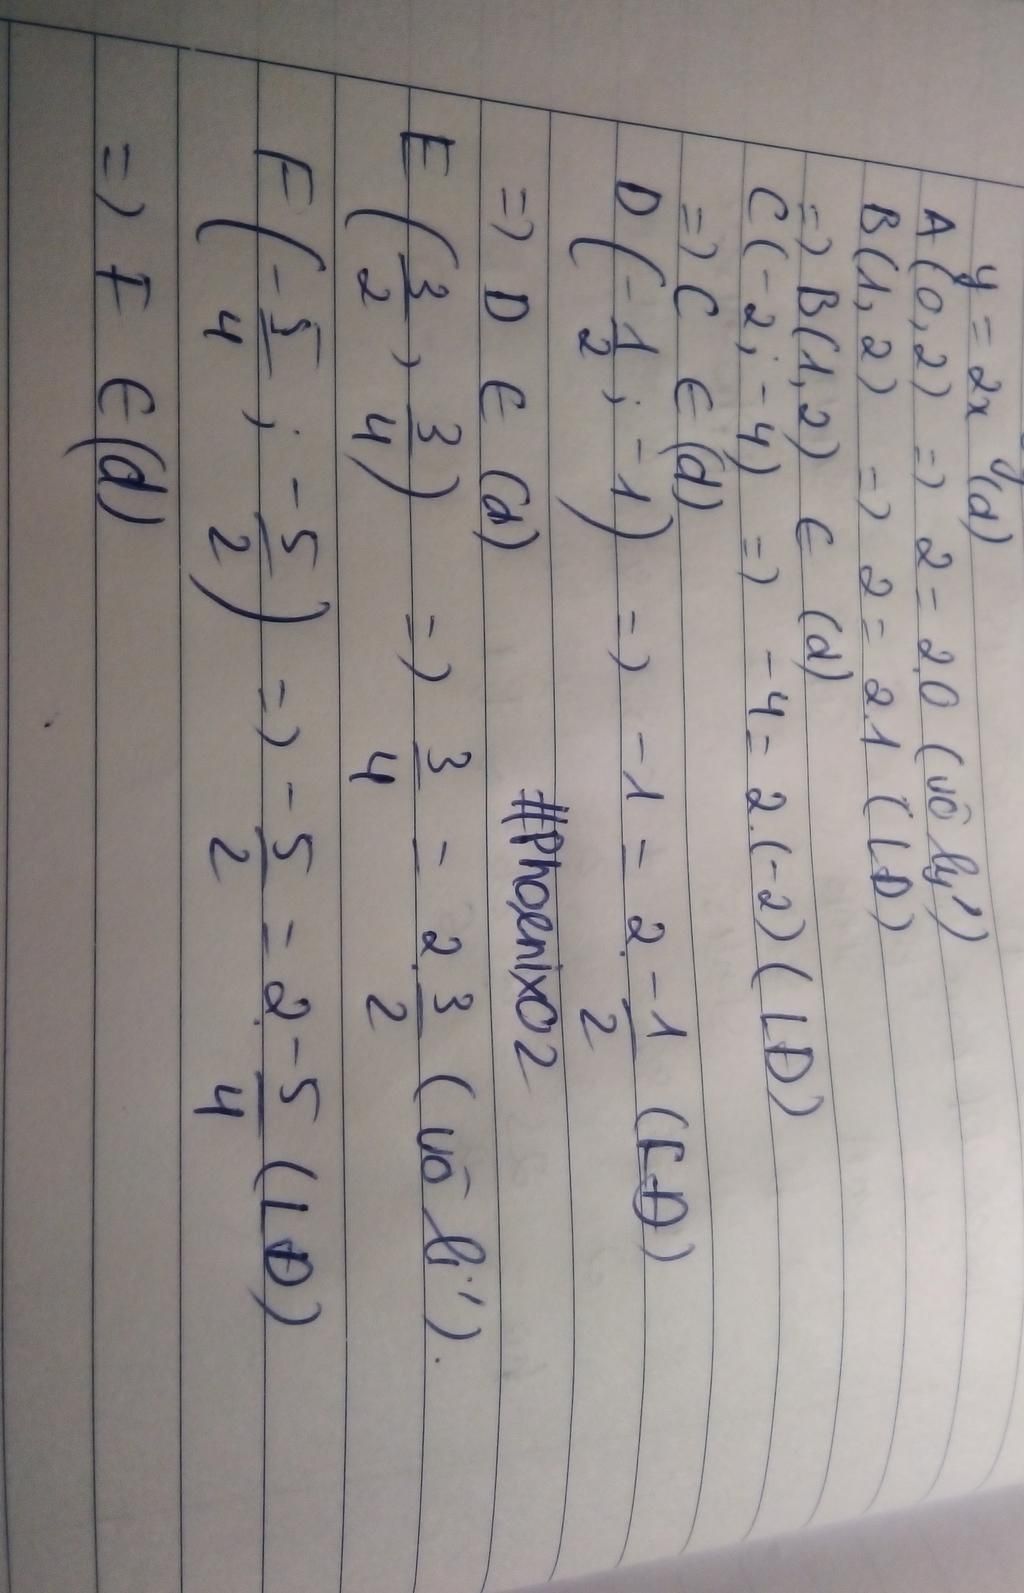 y = 2x (d)
A(0,2) => 2 = 2.0 (vô lý)
B(1,2) => 2 = 2.1 (LĐ)
=> B(1,2) ∈ (d)
C(-2;-4) => -4 = 2.(-2) (LĐ)
=> C ∈ (d)
D(-1/2; -1) => -1 = 2.-1/2 (LĐ)
=> D ∈ (d) #Phoenix02
E(3/2, 3/4) => 3/4 = 2.3/2 (vô lí).
F(-5/4; -5/2) => -5/2 = 2.-5/4 (LĐ)
=> F ∈ (d)